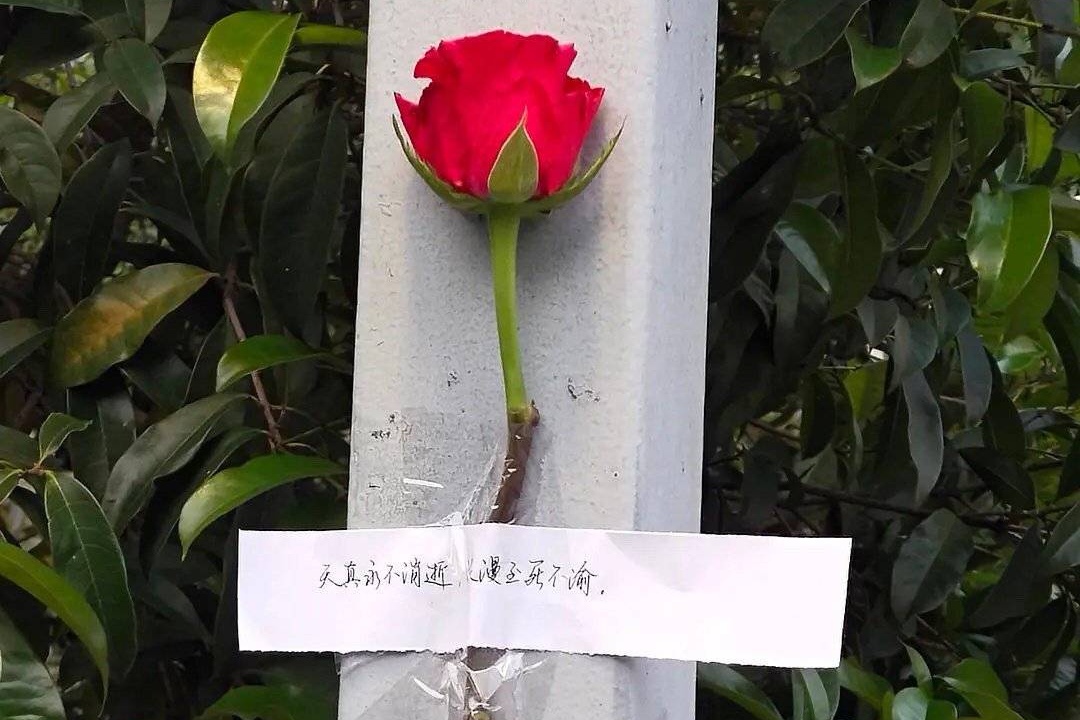 天真永不消逝，浪漫至死不渝.